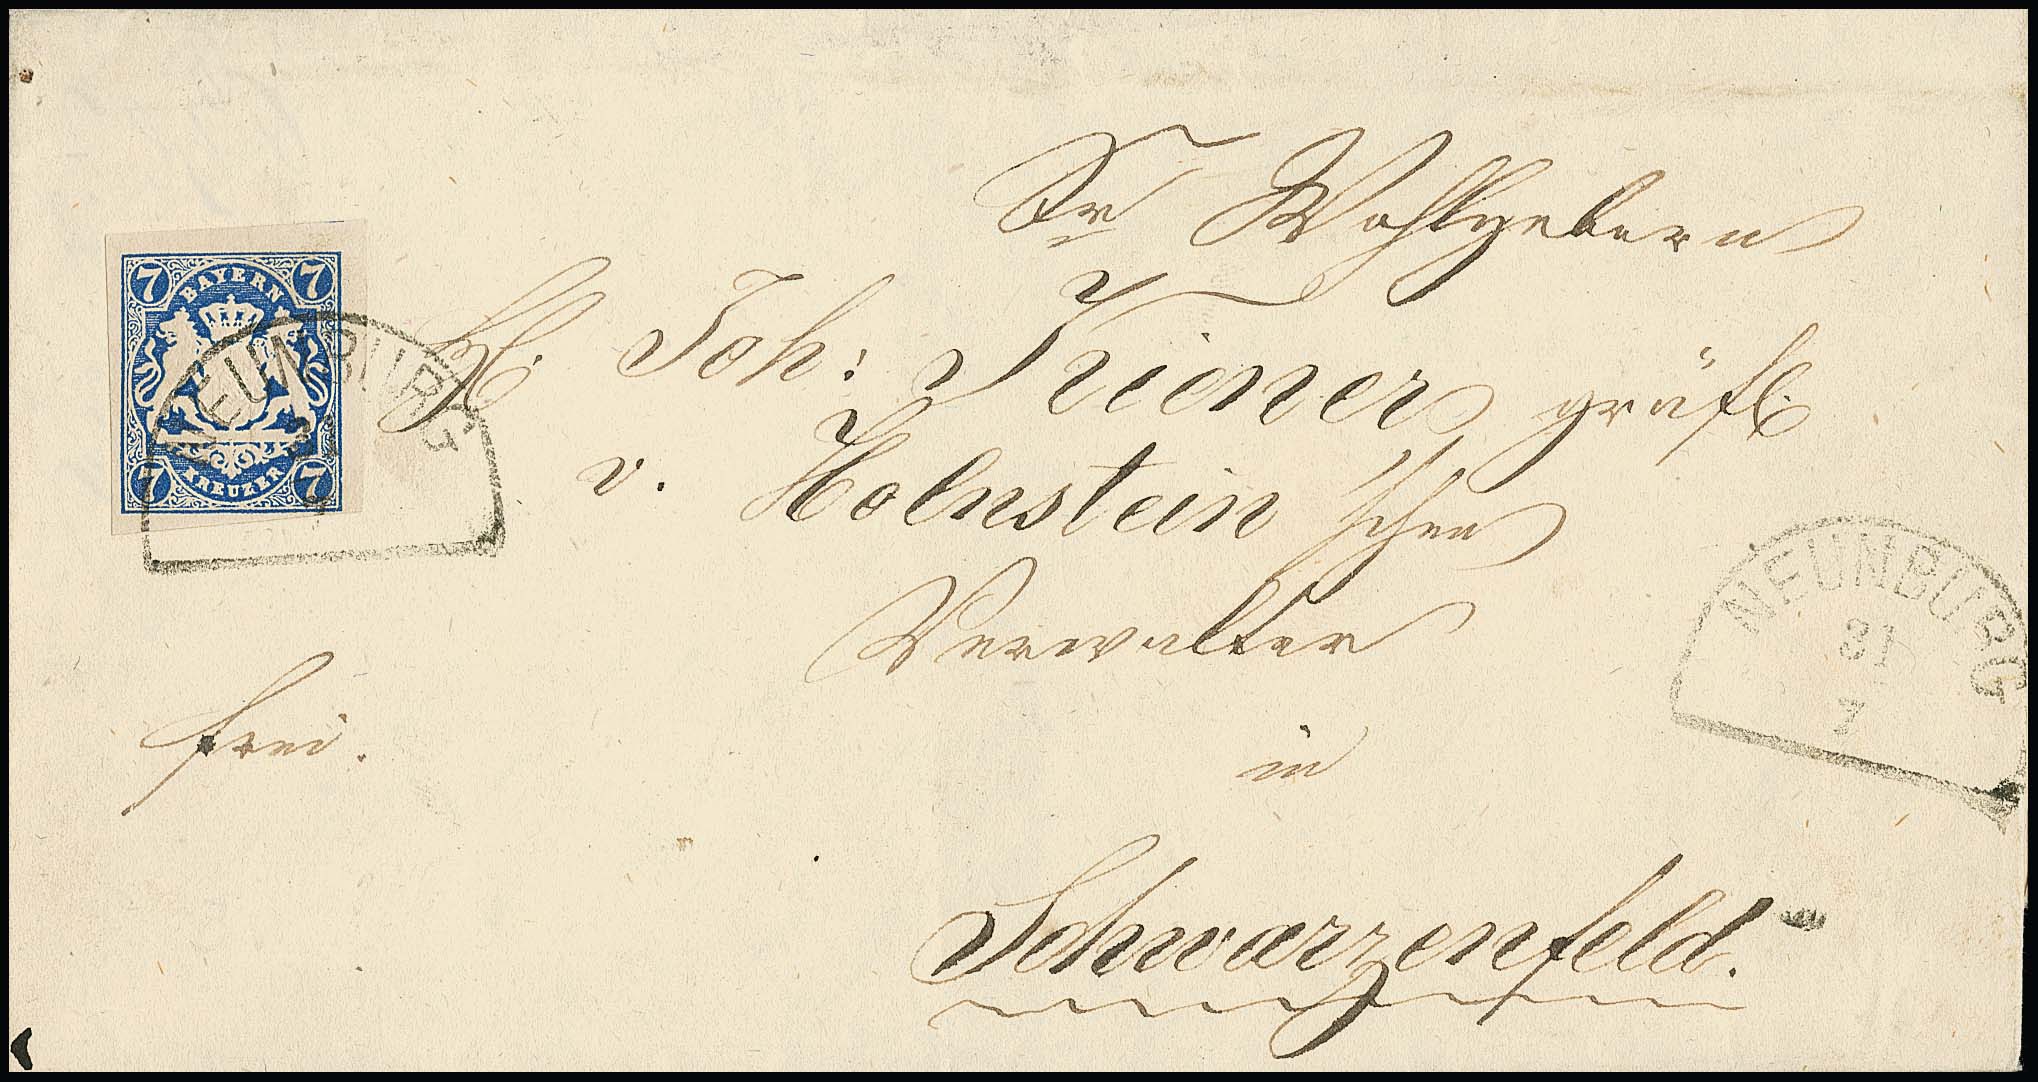 Sr Wohlgeborn
H. Joh: Triener gräfl.
v. Holnstein'schen
Verwalter
in
Schwarzenfeld.
frei.
7 7
BAYERN
KREUZER
7 7
NEUNBURG
31
7
NEUNBURG
31
7